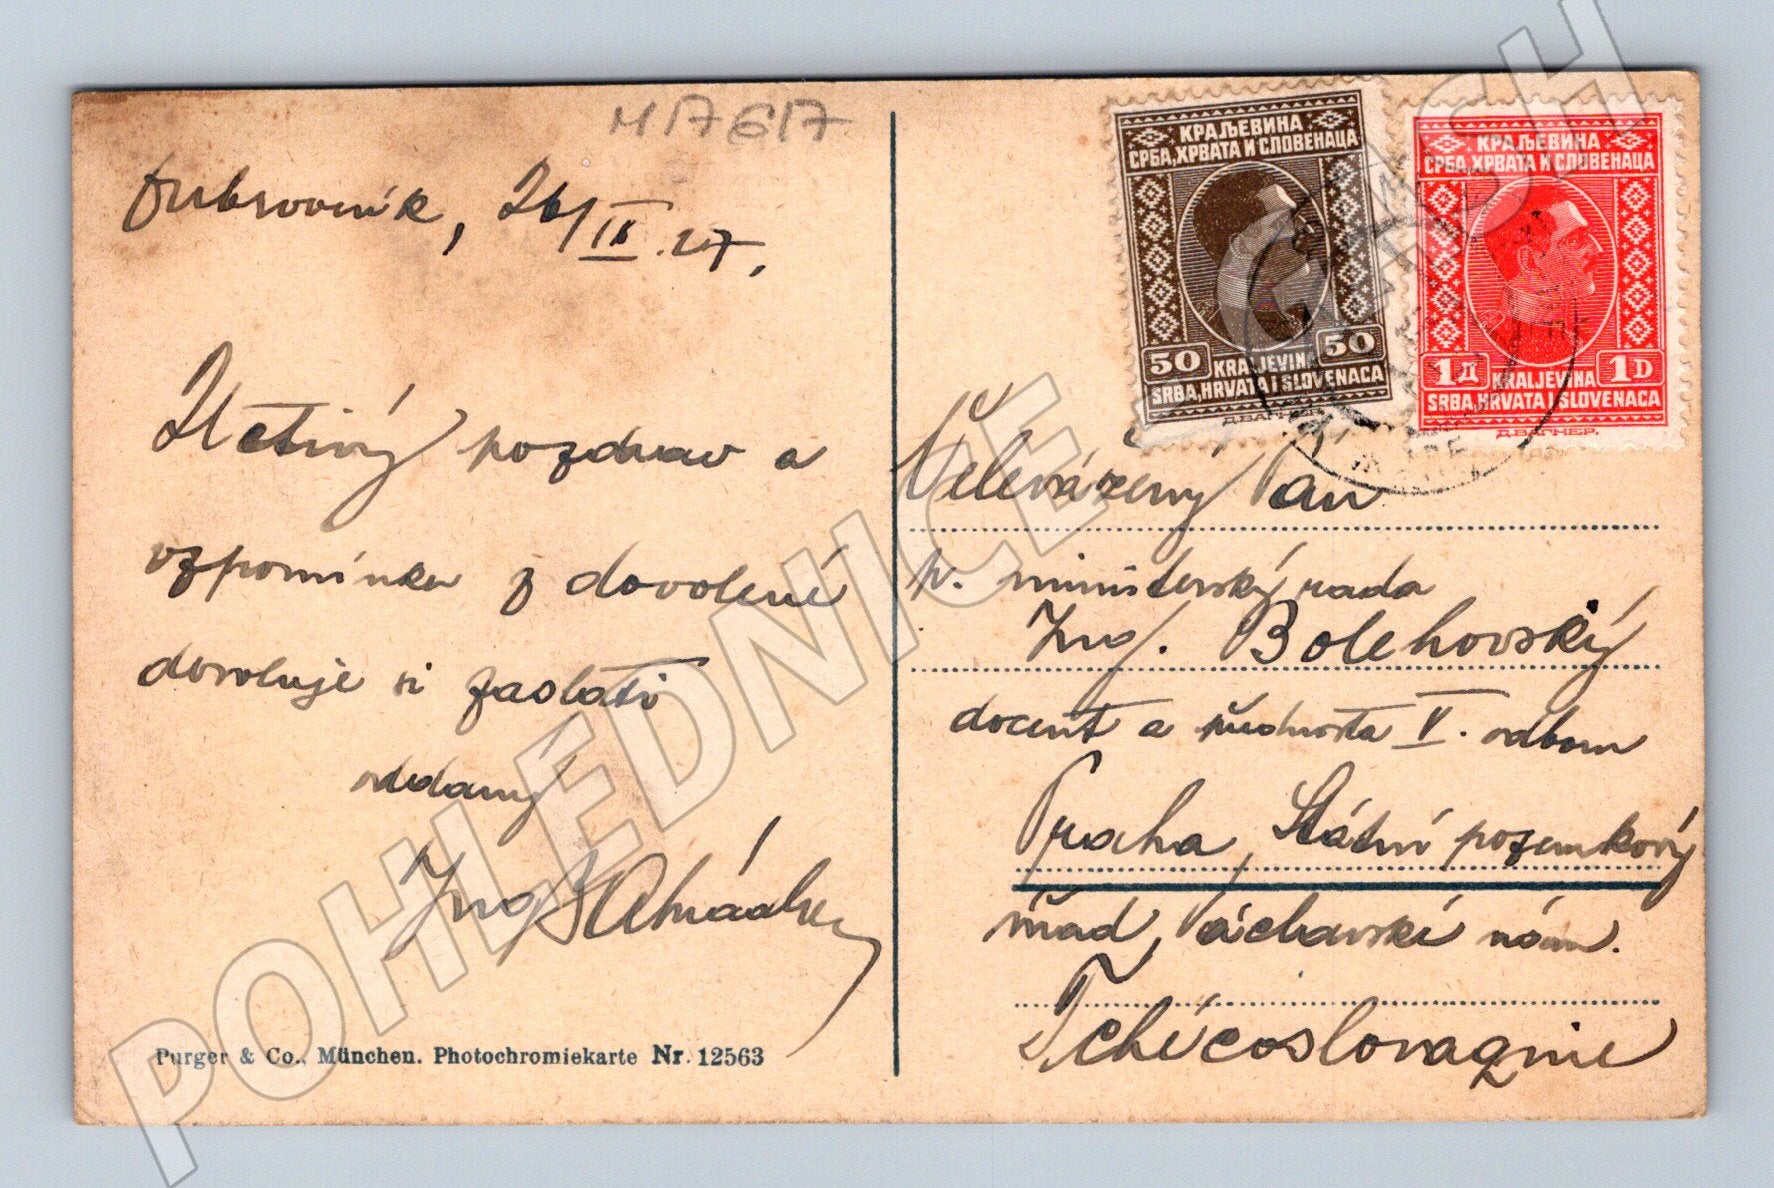 M17617
Dubrovník, 26/IX.27.
Uctivý pozdrav a
vzpomínku z dovolené
dovoluje si zaslati
oddaný
Ing
КРАЉЕВИНА
СРБА, ХРВАТА И СЛОВЕНАЦА
50 50
KRALJEVINA
SRBA, HRVATA I SLOVENACA
КРАЉЕВИНА
СРБА, ХРВАТА И СЛОВЕНАЦА
1Д KRALJEVINA 1D
SRBA, HRVATA I SLOVENACA
Д. ВАГНЕР.
Velevážený Pan
p. ministerský rada
Ing. Bolehovský
docent a přednosta V. odboru
Praha, Státní pozemkový
úřad, nám.
Tchécoslovaquie
Purger & Co., München. Photochromiekarte Nr. 12563
POHLEDNICE